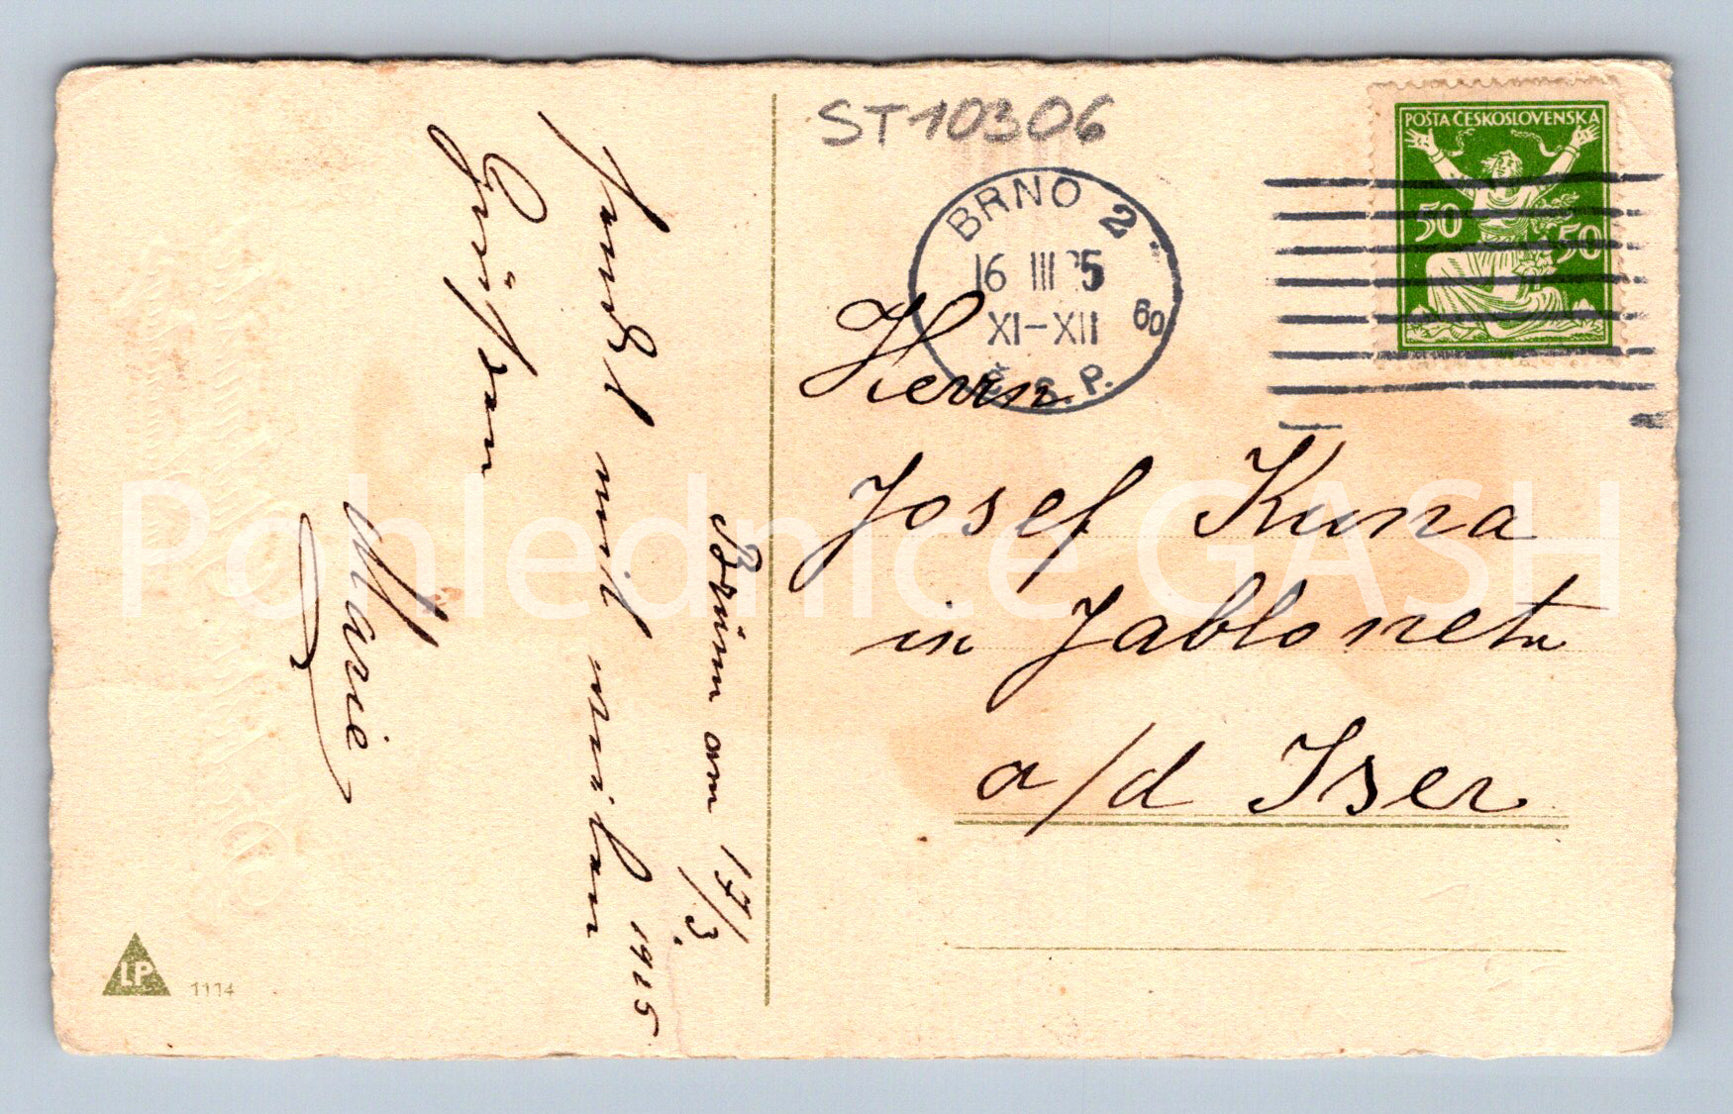 ST10306
BRNO 2
16 III 25
XI-XII
60
Č.S.P.
POŠTA ČESKOSLOVENSKÁ
50 50
Herrn
Josef Kuna
in Jablonetz
a/d Iser
Brünn am 17/3.
1925
mit
Grüßen
Marie
LP
1114
Pohlednice GASH